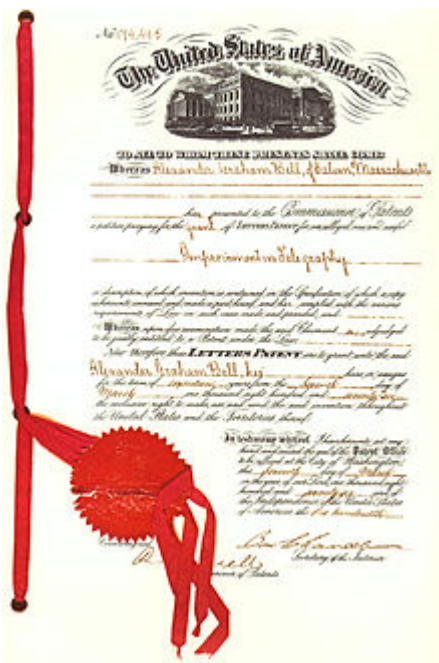 No 174,465
The United States of America
TO ALL TO WHOM THESE PRESENTS SHALL COME:
Whereas Alexander Graham Bell, of Salem, Massachusetts
has presented to the Commissioner of Patents
a petition praying for the grant of LETTERS PATENT for an alleged new and useful
Improvement in Telegraphy
a description of which invention is contained in the Specification of which a copy
is hereunto annexed and made a part hereof, and has complied with the various
requirements of Law in such cases made and provided, and
Whereas upon due examination made the said Claimant is adjudged
to be justly entitled to a Patent under the Law.
Now therefore these LETTERS PATENT are to grant unto the said
Alexander Graham Bell, his heirs or assigns
for the term of seventeen years from the seventh day of
March one thousand eight hundred and seventy six
the exclusive right to make, use and vend the said invention throughout
the United States and the Territories thereof.
In testimony whereof I have hereunto set my
hand and caused the seal of the Patent Office
to be affixed at the City of Washington
the seventh day of March
in the year of our Lord one thousand eight
hundred and of
the Independence of the United States
of America the one hundredth.
Secretary of the Interior
of Patents